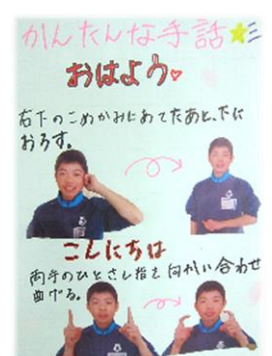 かんたんな手話
おはよう
右下のこめかみにあてたあと、下に
おろす。
こんにちは
両手のひとさし指を向かい合わせ
曲げる。